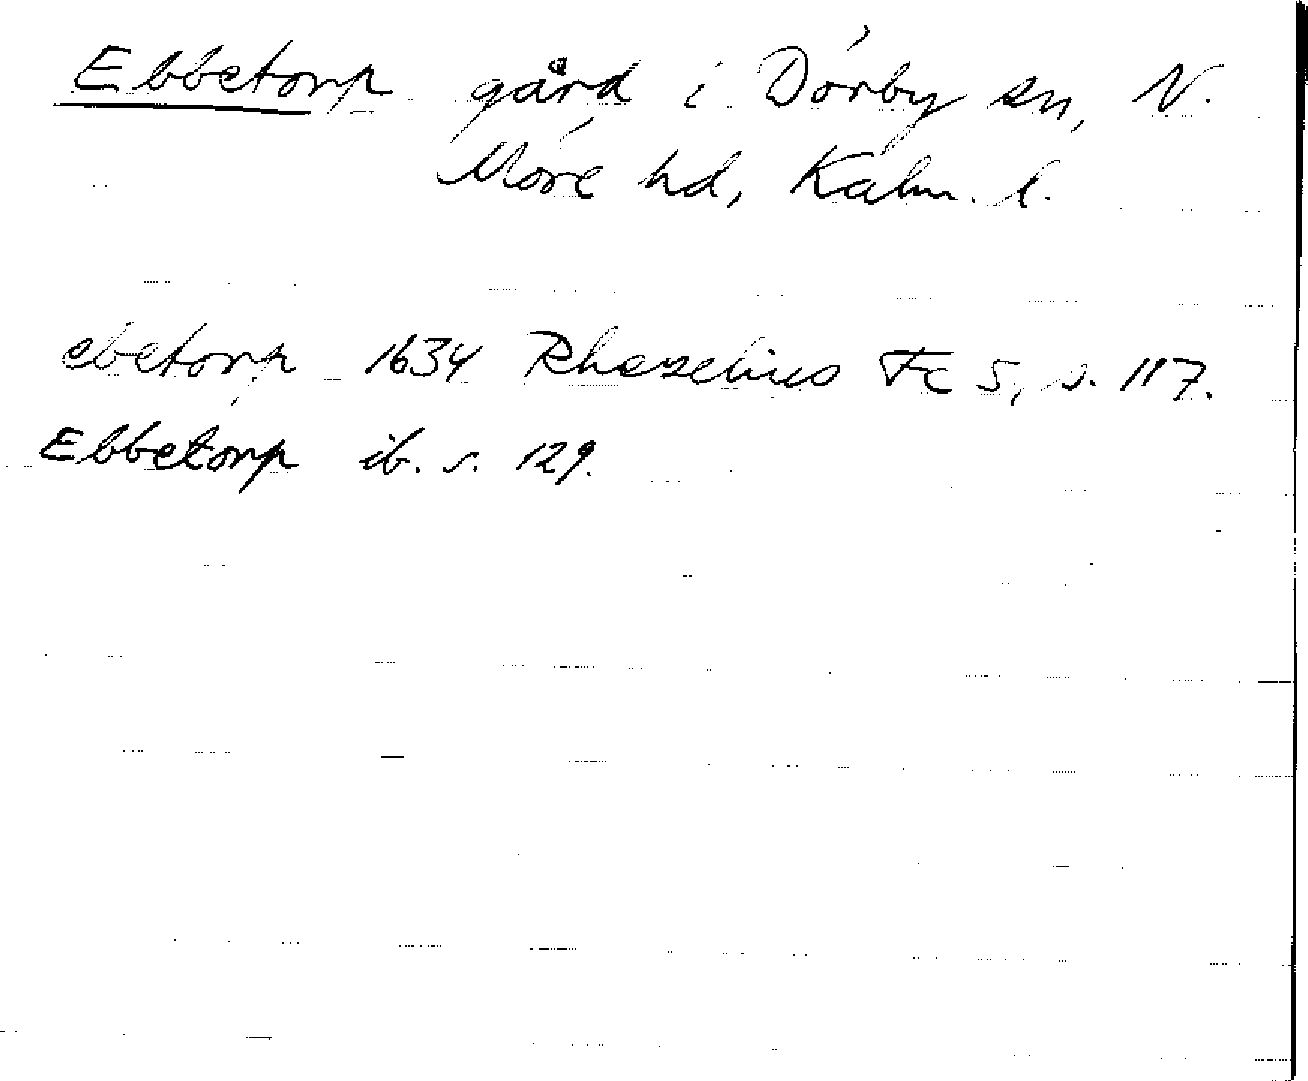 Ebbetorp gård i Dörby sn, N.
Möre hd, Kalm. l.
ebetorp 1634 Rhezelius Fc 5, s. 117.
Ebbetorp ib. s. 129.